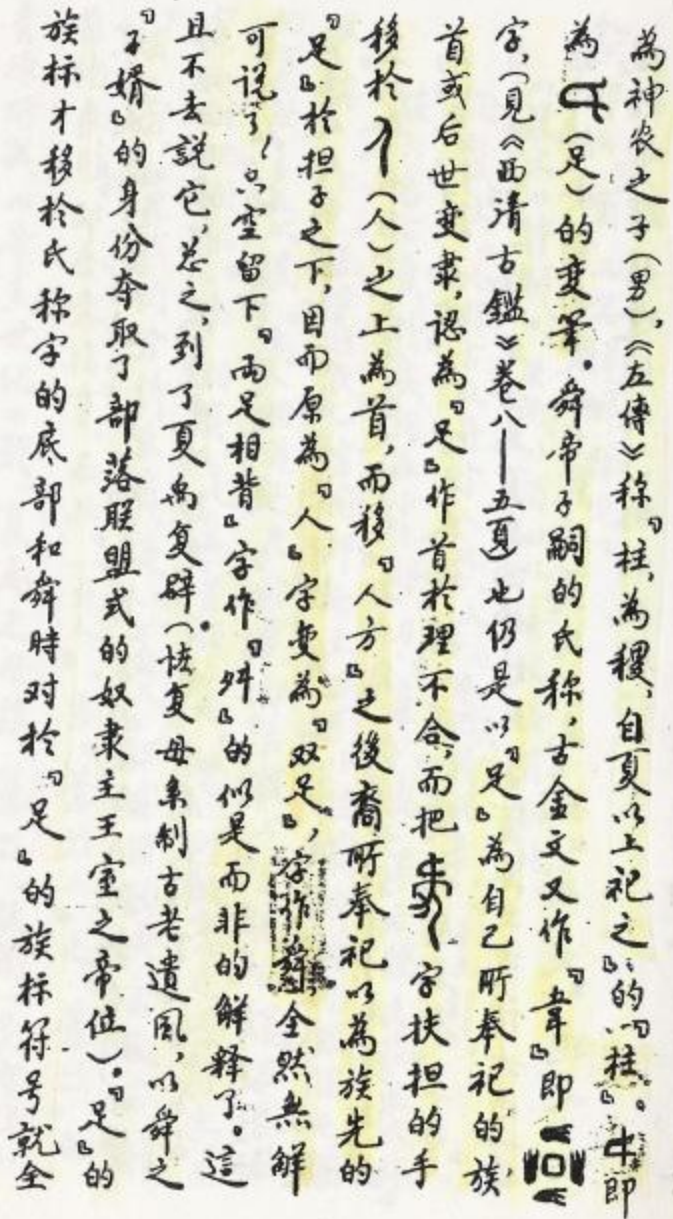 為神农之子(男),《左傳》称『柱,為稷,自夏以上祀之』的『柱』。即
為(足)的变筆。舜帝子嗣的氏称,古金文又作『韋』即
字,(見《西清古鑑》卷八——五頁)也仍是以『足』為自己所奉祀的族
首或后世变隶,認為『足』作首於理不合,而把字扶担的手
移於(人)之上為首,而移『人方』之後裔所奉祀以為族先的
『足』於担子之下,因而原為『人』字变為『双足』,字作舜全然無解
可説了,只空留下『兩足相背』字作『舛』的似是而非的解释了。這
且不去説它,总之,到了夏禹复辟(恢复母系制古老遺風,以舜之
『子婿』的身份夺取了部落联盟式的奴隶主王室之帝位)。『足』的
族标才移於氏称字的底部和舜時对於『足』的族标符号就全